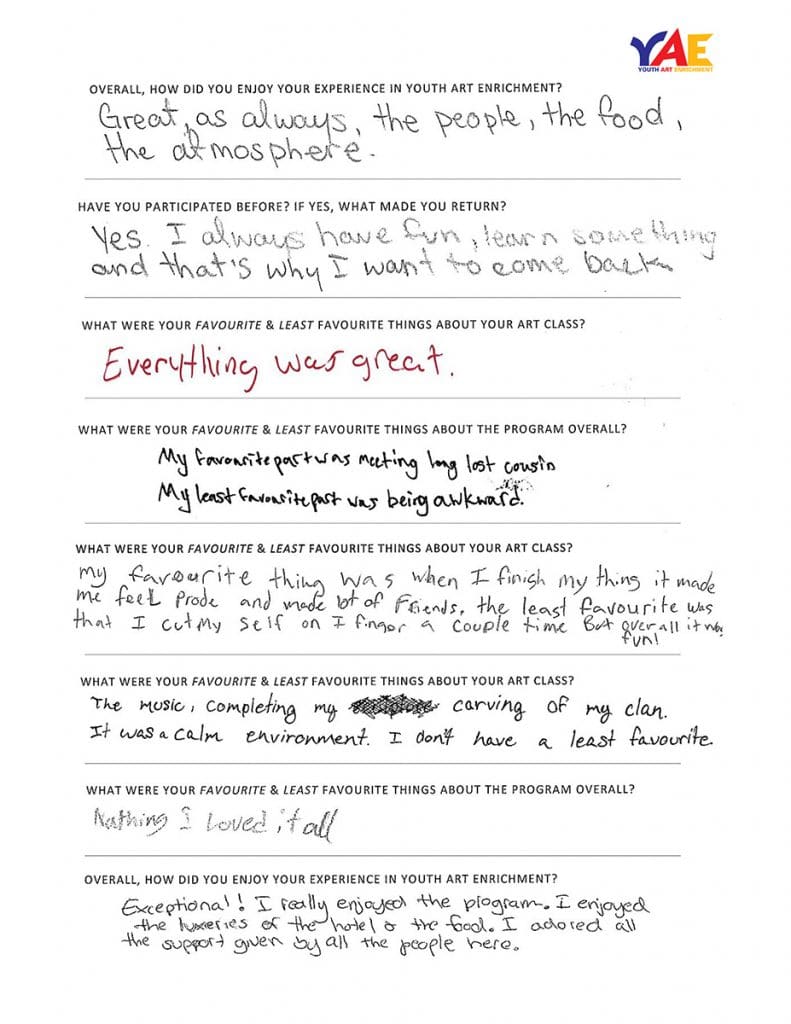 YAE
YOUTH ART ENRICHMENT
OVERALL, HOW DID YOU ENJOY YOUR EXPERIENCE IN YOUTH ART ENRICHMENT?
Great, as always, the people, the food,
the atmosphere.
HAVE YOU PARTICIPATED BEFORE? IF YES, WHAT MADE YOU RETURN?
Yes. I always have fun, learn something
and that's why I want to come back
WHAT WERE YOUR FAVOURITE & LEAST FAVOURITE THINGS ABOUT YOUR ART CLASS?
Everything was great.
WHAT WERE YOUR FAVOURITE & LEAST FAVOURITE THINGS ABOUT THE PROGRAM OVERALL?
My favourite part was meeting long lost cousin
My least favourite part was being awkward.
WHAT WERE YOUR FAVOURITE & LEAST FAVOURITE THINGS ABOUT YOUR ART CLASS?
My favourite thing was when I finish my thing it made
me feel prode and made lot of Friends, the least favourite was
that I cut my self on I finger a couple time But over all it was
fun!
WHAT WERE YOUR FAVOURITE & LEAST FAVOURITE THINGS ABOUT YOUR ART CLASS?
The music, completing my carving of my clan.
It was a calm environment. I don't have a least favourite.
WHAT WERE YOUR FAVOURITE & LEAST FAVOURITE THINGS ABOUT THE PROGRAM OVERALL?
Nothing I loved it all
OVERALL, HOW DID YOU ENJOY YOUR EXPERIENCE IN YOUTH ART ENRICHMENT?
Exceptional! I really enjoyed the program. I enjoyed
the luxeries of the hotel & the food. I adored all
the support given by all the people here.